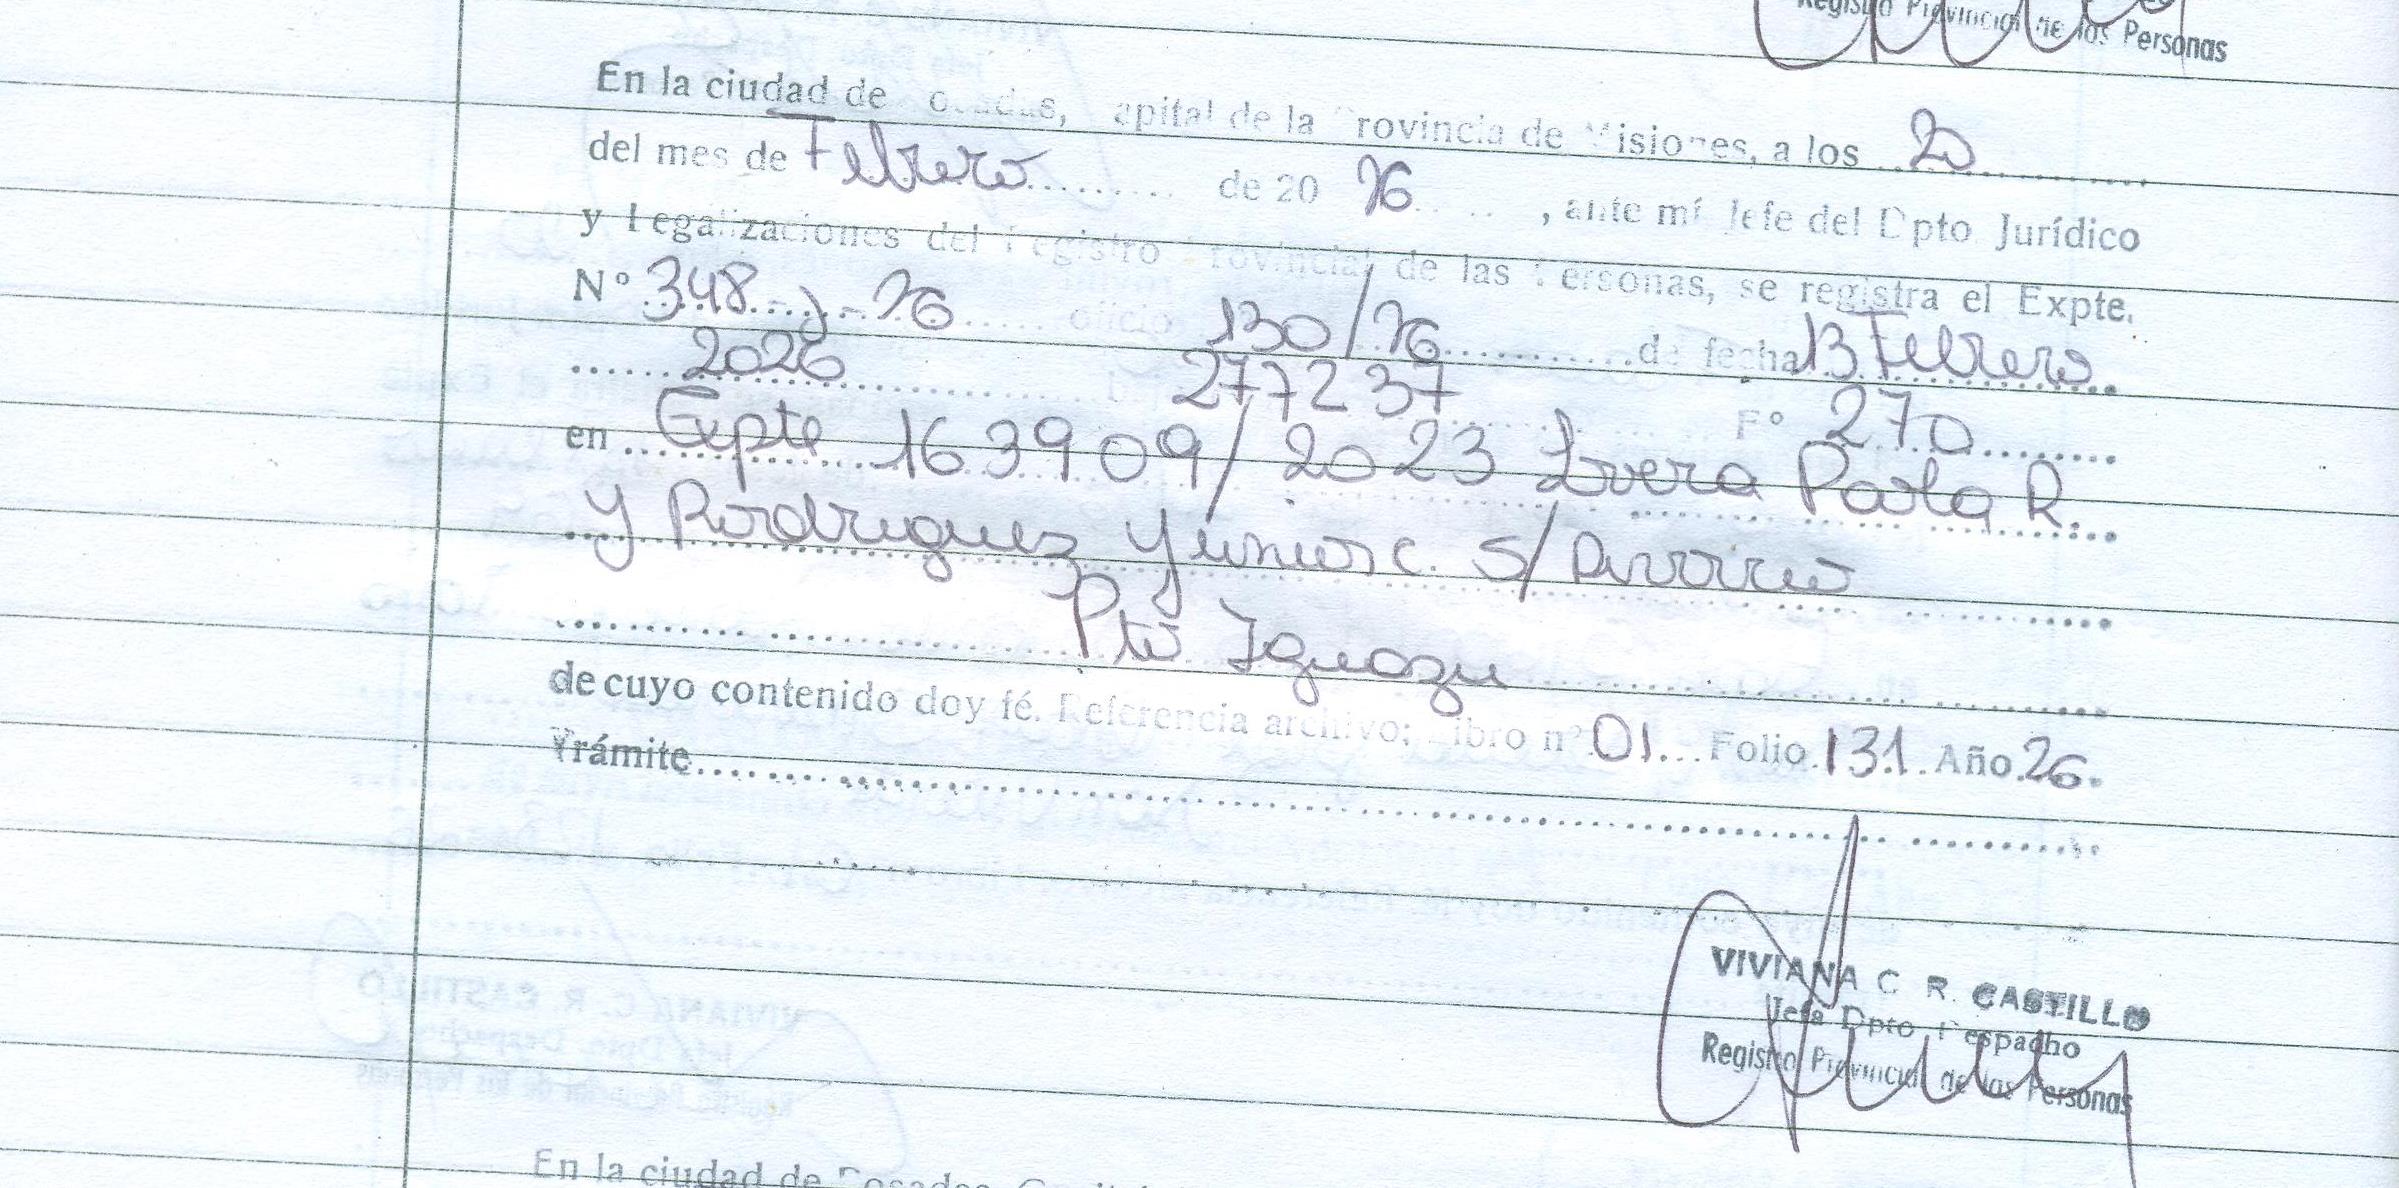 Registro Provincial de las Personas
En la ciudad de osadas, apital de la Provincia de Misiones, a los 20
del mes de Febrero de 20 26, ante mí Jefe del Dpto. Jurídico
y Legalizaciones del Registro Provincial de las Personas, se registra el Expte.
N° 348-J-26 oficio 130/26 de fecha 13 Febrero
2026 277237 F° 270
en Expte 163909/2023 Lvera Paola R.
y Rodriguez Yunior C. S/ Divorcio
Pto Iguazu
de cuyo contenido doy fé. Referencia archivo; Libro n° 01 Folio 131 Año 26.
Trámite
VIVIANA C R. CASTILLO
Jefa Dpto Despacho
Registro Provincial de las Personas
En la ciudad de Posadas, Capital